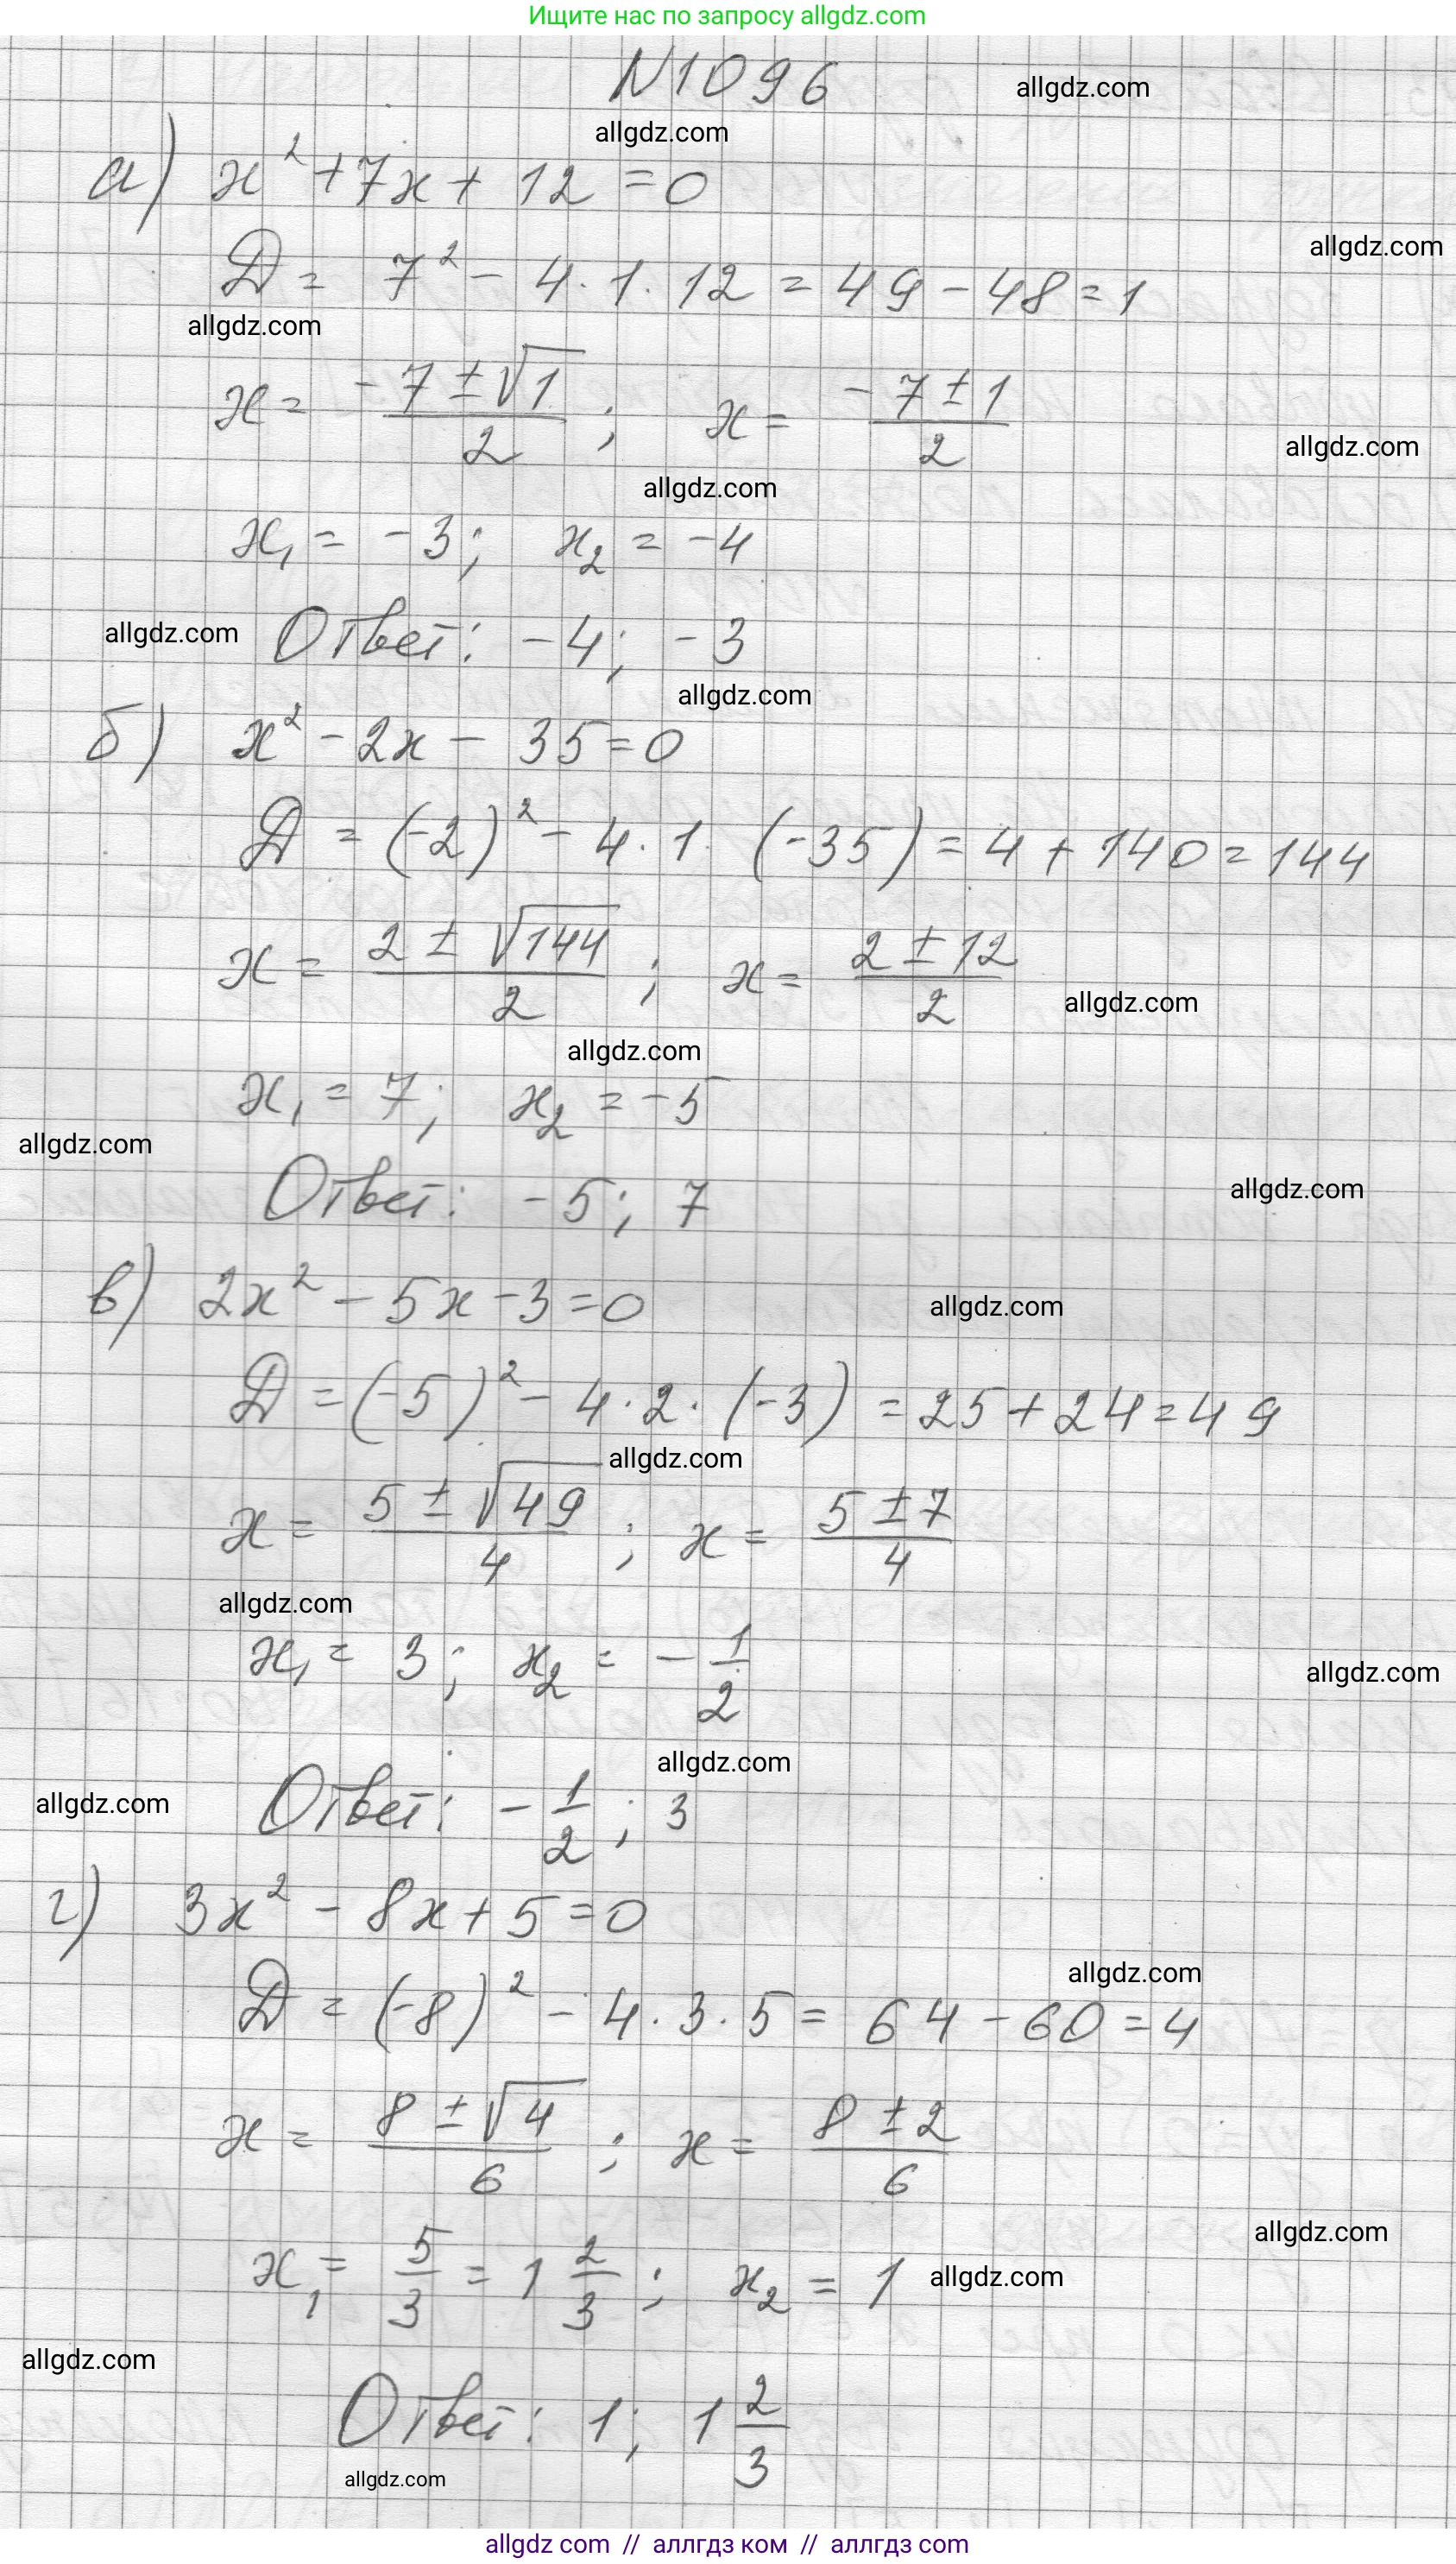 Ищите нас по запросу allgdz.com
N1096
allgdz.com
allgdz.com
а) x² + 7x + 12 = 0
allgdz.com
D = 7² - 4 · 1 · 12 = 49 - 48 = 1
allgdz.com
x = (-7 ± √1)/2 ; x = (-7 ± 1)/2
allgdz.com
allgdz.com
x₁ = -3; x₂ = -4
allgdz.com Ответ: -4; -3
allgdz.com
б) x² - 2x - 35 = 0
D = (-2)² - 4 · 1 · (-35) = 4 + 140 = 144
x = (2 ± √144)/2 ; x = (2 ± 12)/2
allgdz.com
allgdz.com
x₁ = 7; x₂ = -5
allgdz.com
allgdz.com
Ответ: -5; 7
в) 2x² - 5x - 3 = 0
allgdz.com
D = (-5)² - 4 · 2 · (-3) = 25 + 24 = 49
allgdz.com
x = (5 ± √49)/4 ; x = (5 ± 7)/4
allgdz.com
x₁ = 3; x₂ = -1/2
allgdz.com
allgdz.com
allgdz.com Ответ: -1/2; 3
г) 3x² - 8x + 5 = 0
allgdz.com
D = (-8)² - 4 · 3 · 5 = 64 - 60 = 4
x = (8 ± √4)/6 ; x = (8 ± 2)/6
allgdz.com
x₁ = 5/3 = 1 2/3 ; x₂ = 1 allgdz.com
allgdz.com
Ответ: 1; 1 2/3
allgdz.com
allgdz com // аллгдз ком // аллгдз com